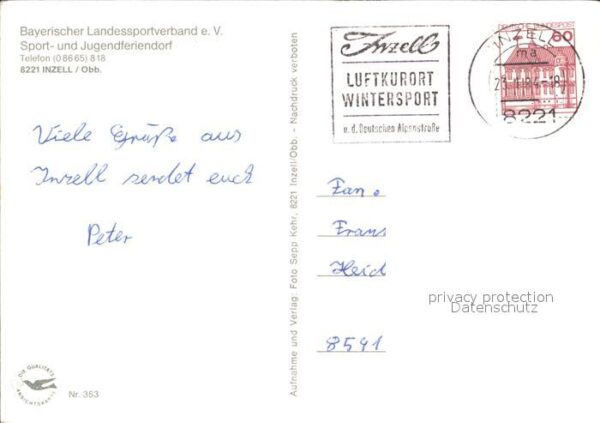 Bayerischer Landessportverband e. V.
Sport- und Jugendferiendorf
Telefon (0 86 65) 8 18
8221 INZELL / Obb.
Viele Grüße aus
Inzell sendet euch
Peter
DIE QUALITÄTS
ANSICHTSKARTE
Nr. 353
Aufnahme und Verlag: Foto Sepp Kehr, 8221 Inzell/Obb. - Nachdruck verboten
Inzell
LUFTKURORT
WINTERSPORT
a. d. Deutschen Alpenstraße
60
INZELL
ma
8221
Fam.
Frans
Heid
8591
privacy protection
Datenschutz